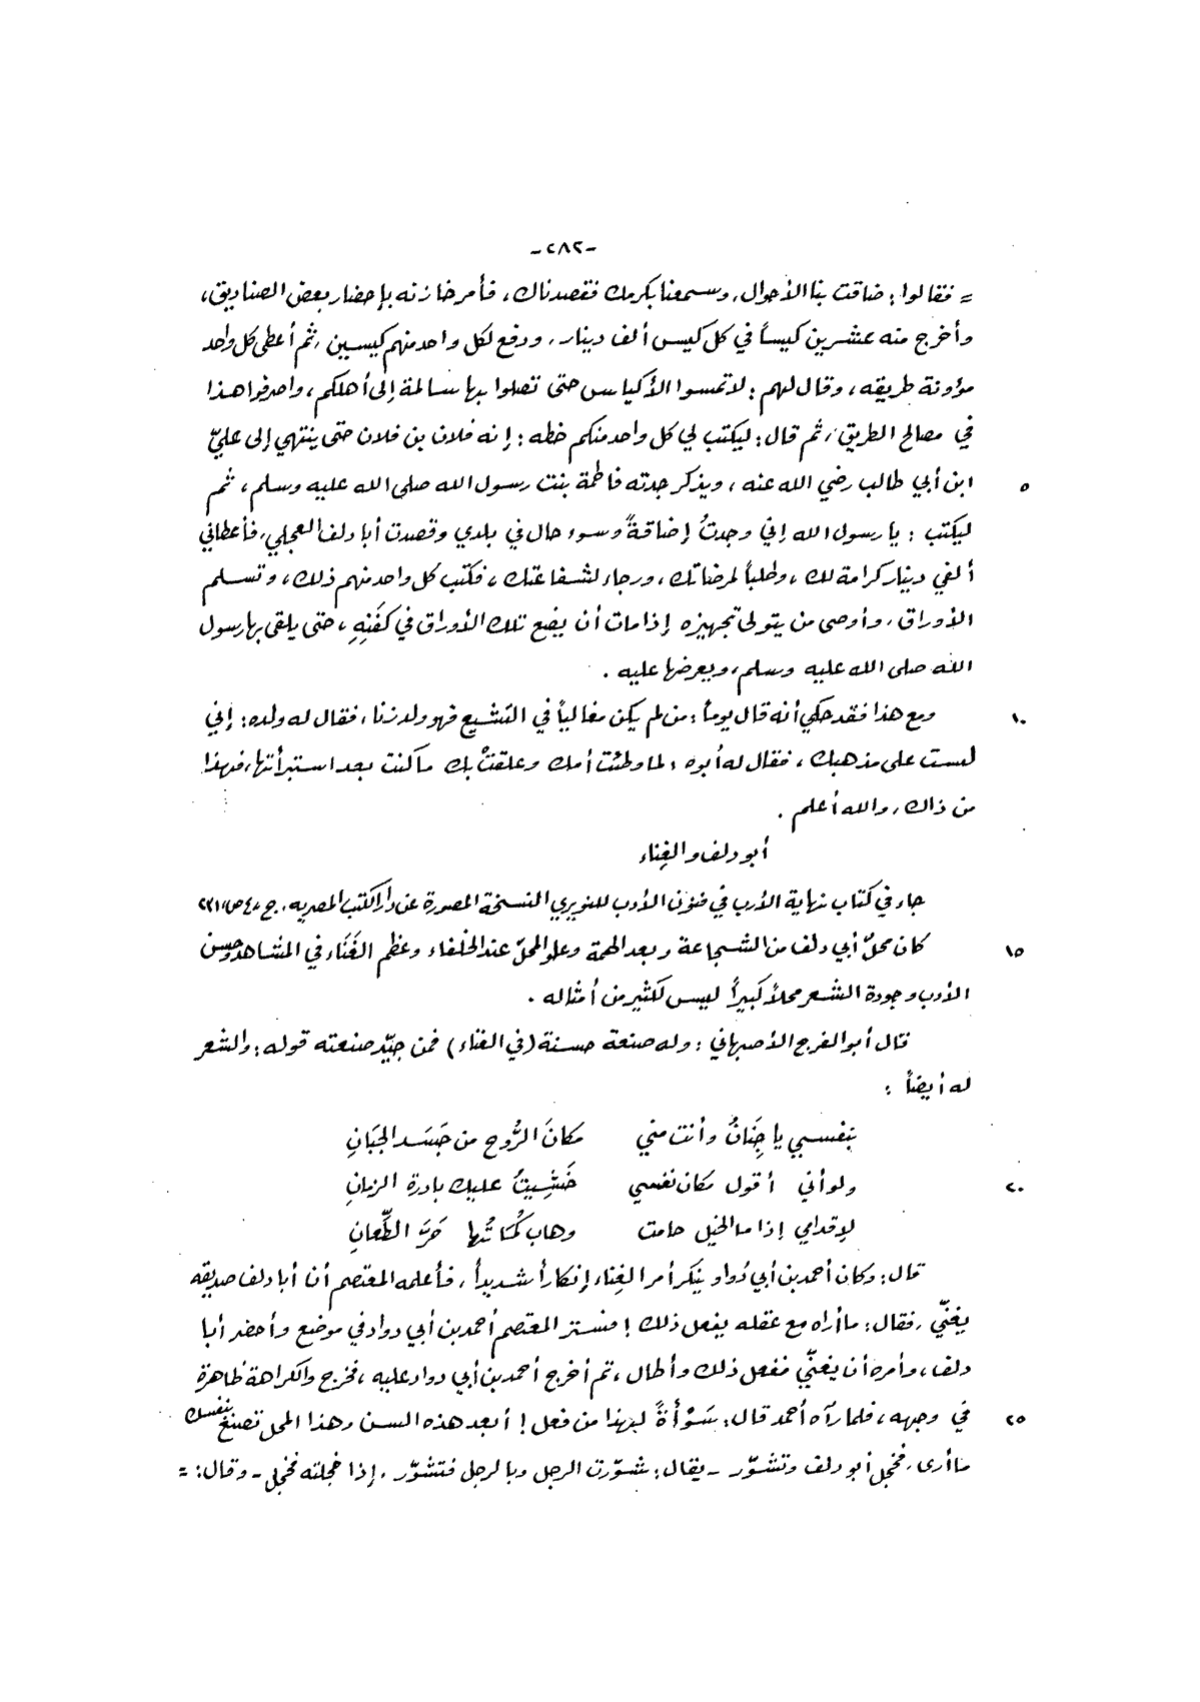 -٢٨٢-
= فقالوا: ضاقت بنا الأحوال، وسمعنا بكرمك فقصدناك، فأمر خازنه بإحضار بعض الصناديق،
وأخرج منه عشرين كيساً في كل كيس ألف دينار، ودفع لكل واحد منهم كيسين، ثم أعطى كل واحد
مؤونة طريقه، وقال لهم: لا تمسوا الأكياس حتى تصلوا بها سالمة إلى أهلكم، واصرفوا هذا
في مصالح الطريق، ثم قال: ليكتب لي كل واحد منكم خطه: إنه فلان بن فلان حتى ينتهي إلى عليّ
٥ ابن أبي طالب رضي الله عنه، ويذكر جدته فاطمة بنت رسول الله صلى الله عليه وسلم، ثم
ليكتب: يا رسول الله إني وجدتُ إضاقةً وسوء حال في بلدي وقصدت أبا دلف العجلي، فأعطاني
ألفي دينار كرامة لك، وطلباً لمرضاتك، ورجاء لشفاعتك، فكتب كل واحد منهم ذلك، وتسلم
الأوراق، وأوصى من يتولى تجهيزه إذا مات أن يضع تلك الأوراق في كفَنِهِ، حتى يلقى بها رسول
الله صلى الله عليه وسلم، ويعرضها عليه.
١٠ ومع هذا فقد حكي أنه قال يوماً: من لم يكن مغالياً في التشيع فهو ولد زنا، فقال له ولده: إني
لست على مذهبك، فقال له أبوه: لما وطئت أمك وعلقتْ بك ما كنت بعد استبرأتها، فهذا
من ذاك، والله أعلم.
أبو دلف والغِناء
جاء في كتاب نهاية الأرب في فنون الأدب للنويري النسخة المصورة عن دار الكتب المصريه، ج ٤ ص ٢٣١
١٥ كان محلّ أبي دلف من الشجاعة وبعد الهمة وعلو المحلّ عند الخلفاء وعظم الغَنَاء في المشاهد وحسن
الأدب وجودة الشعر محلاً كبيراً ليس لكثير من أمثاله.
قال أبو الفرج الأصبهاني: وله صنعة حسنة (في الغناء) فمن جيّد صنعته قوله: والشعر
له أيضاً:
بنفسي يا جِنَانُ وأنت مني مكانَ الرُّوح من جَسَد الجَبَانِ
٢٠ ولو أني أقول مكان نفسي خَشِيتُ عليك بادرة الزمانِ
لإقدامي إذا ما الخيل حامت وهاب كُمَاتُها حَرَّ الطِّعانِ
قال: وكان أحمد بن أبي دُواد ينكر أمر الغِناء إنكاراً شديداً، فأعلمه المعتصم أن أبا دلف صديقه
يغنّي، فقال: ما أراه مع عقله يفعل ذلك! فستر المعتصم أحمد بن أبي دواد في موضع وأحضر أبا
دلف، وأمره أن يغنّي ففعل ذلك وأطال، ثم أخرج أحمد بن أبي دواد عليه، فخرج والكراهة ظاهرة
٢٥ في وجهه، فلما رآه أحمد قال: سَوْأَةً لهذا من فعل! أبعد هذه السن وهذا المحل تصنع بنفسك
ما أرى، فخجل أبو دلف وتشوّر - يقال: شوّرت الرجل وبالرجل فتشوّر، إذا خجلته فخجل - وقال: =